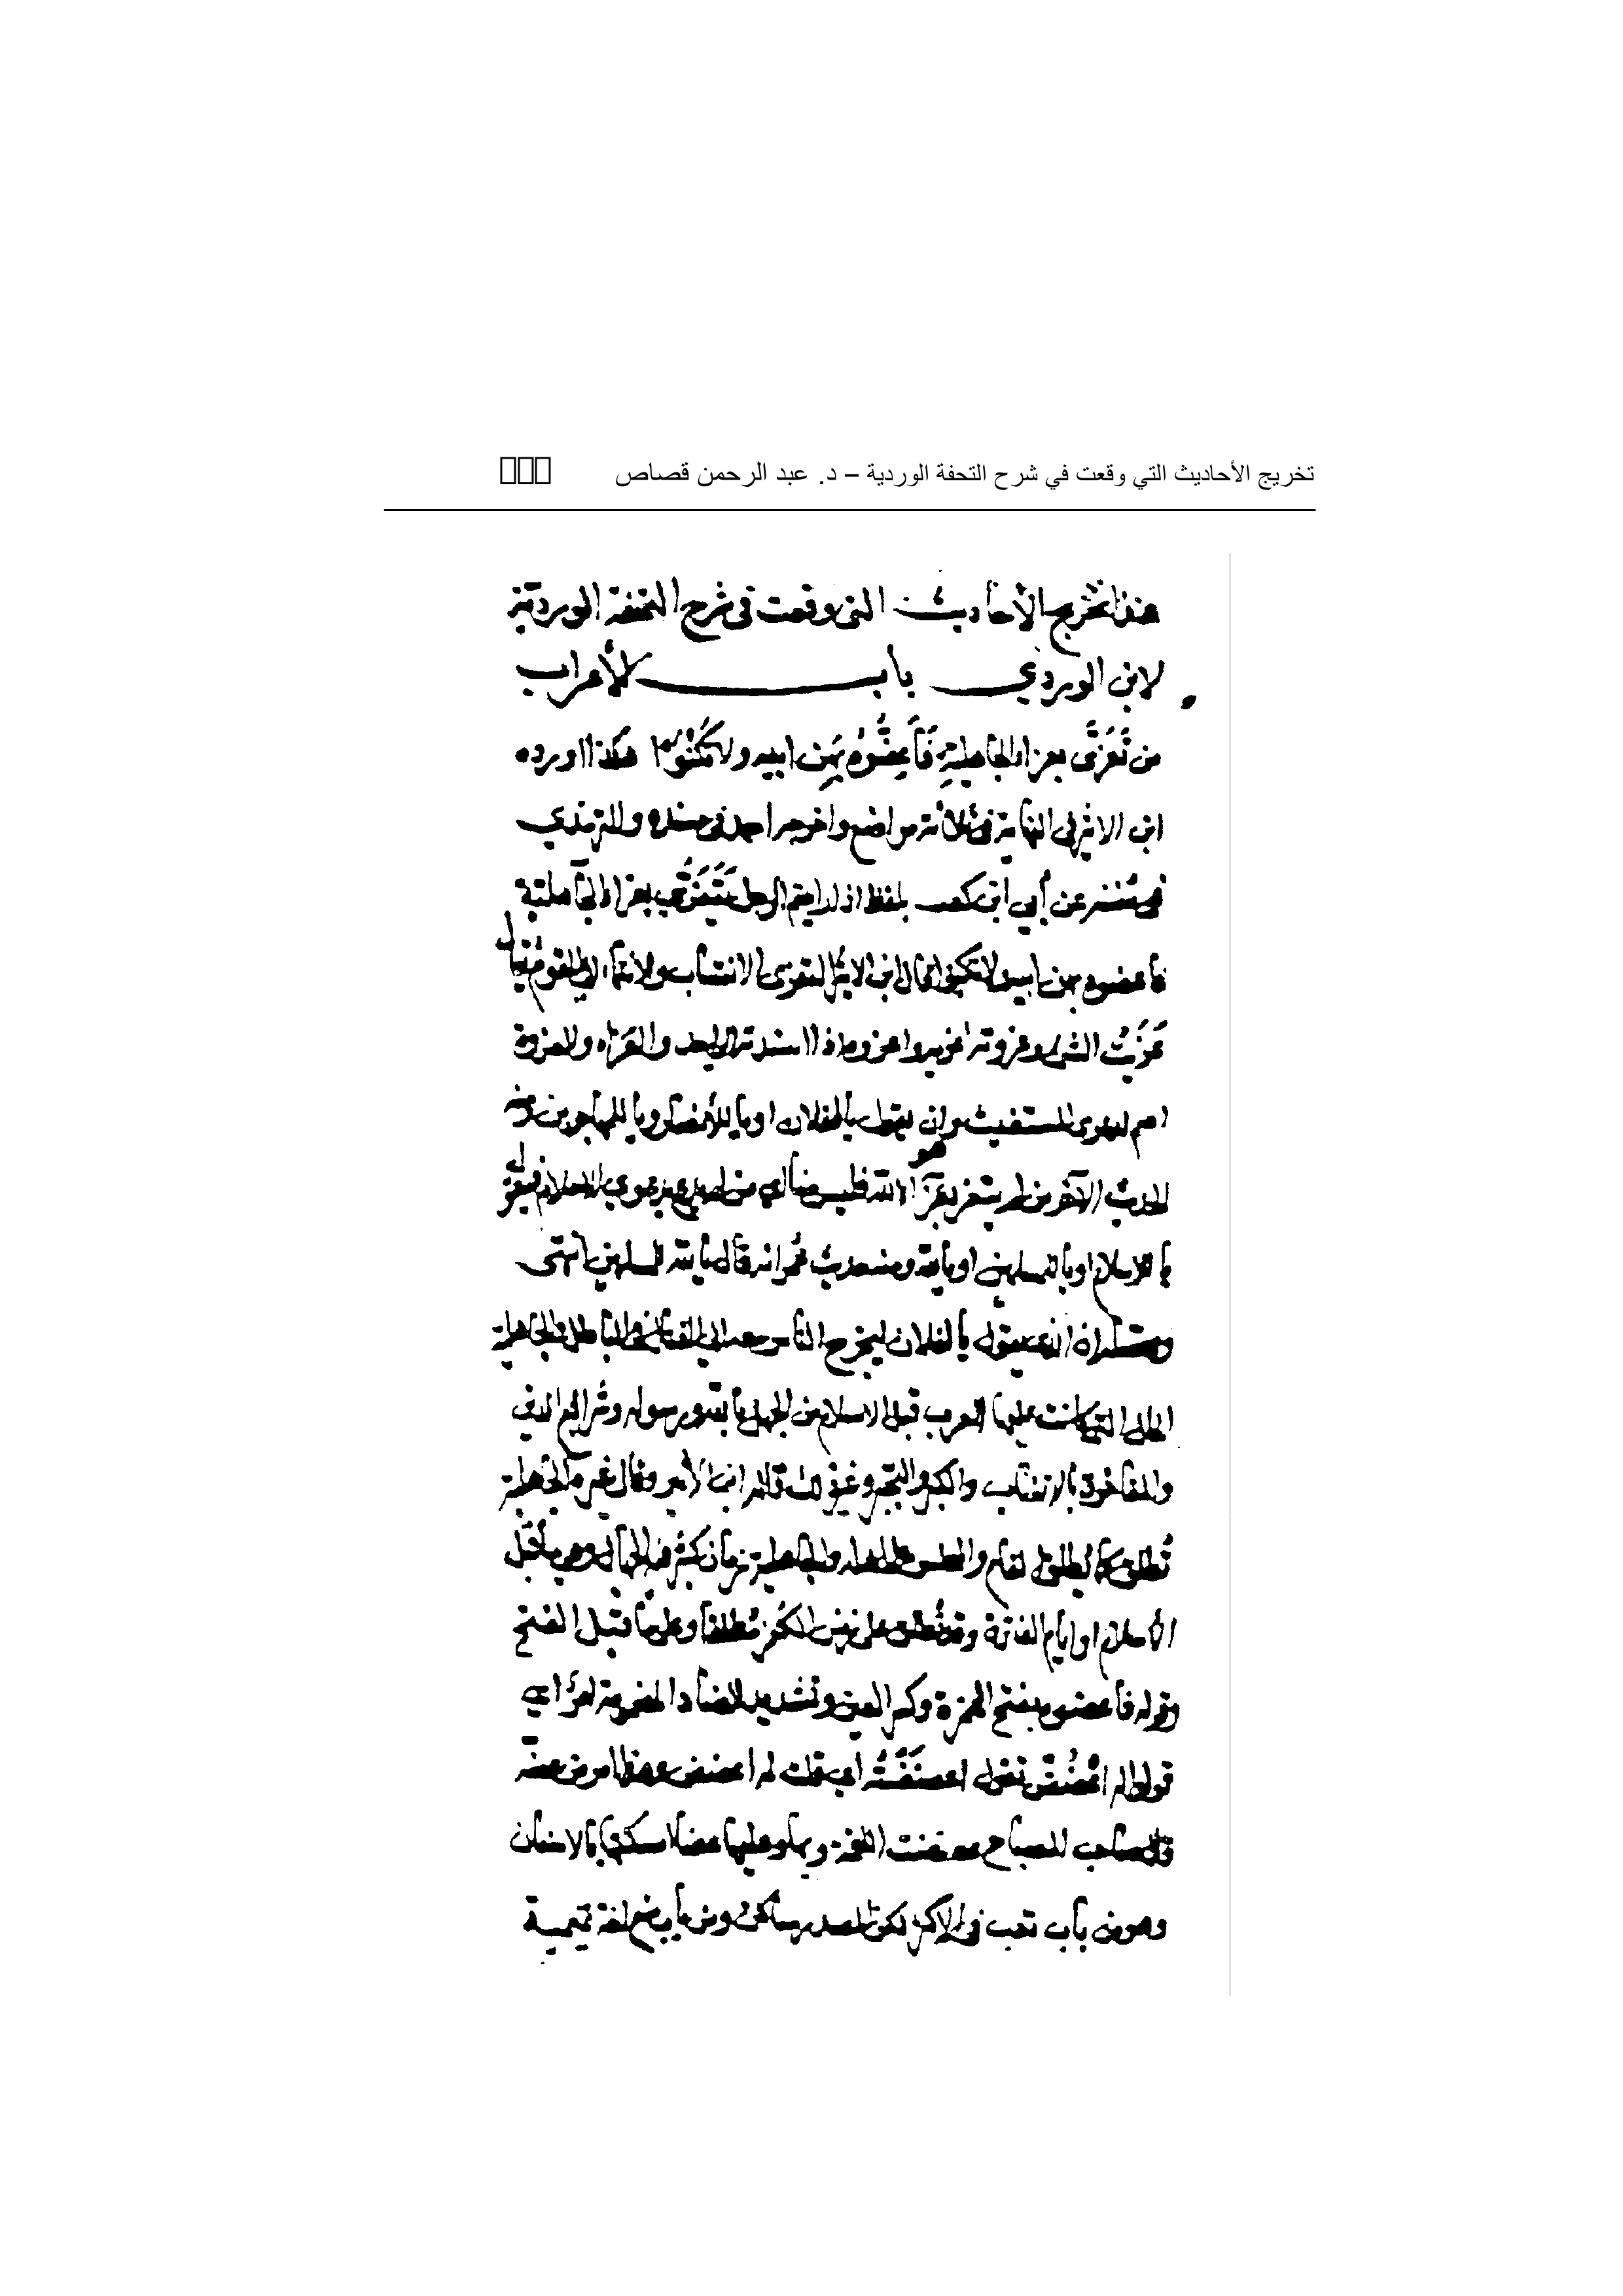 تخريج الأحاديث التي وقعت في شرح التحفة الوردية – د. عبد الرحمن قصاص
هذا تخريج الأحاديث التي وقعت في شرح التحفة الوردية
لابن الوردي باب الأعراب
من تَعَزَّى بعزاء الجاهلية فَأَعِضُّوه بِهَن ابيه ولا تَكْنُوا هكذا اورده
ابن الاثير في النهاية في ثلاثة مواضع واخرجه احمد في مسنده والترمذي
عن أبي ابن كعب بلفظ اذا رايتم الرجل يَتَعَزَّى بعزاء الجاهلية
فاعضوه بهن ابيه ولا تكنوا قال ابن الاثير التعزي الانتساب والانتماء الى القوم يقال
عَزَيتُ الشيء وعزوته اعزيه واعزوه اذا اسندته الى احد والعَزاء والعزوة
اسم لدعوى المستغيث وان يقول يا لفلان او يا للأنصار ويا للمهاجرين ومنه
الحديث الآخر من لم يتعز بعزاء الله فليس منا اي من لم يدع بدعوى الاسلام فيقول
يا للاسلام او يا للمسلمين او يا لله ومنه حديث عُمر انه قال يا لله للمسلمين انتهى
الذي يقول يا لفلان ليخرج الناس معه الى القتال في الباطل والجاهلية
الحال التي كانت عليها العرب قبل الاسلام من الجهل بالله ورسوله وشرائع الدين
والمفاخرة بالانتساب والكبر والتجبر وغير ذلك قاله ابن الأثير وقال غيره الجاهلية
زمان كثر فيه الجهال وهي ما قبل
الاسلام او ايام الفترة وقد تُطلق على زمن الكُفر مُطلقا وعلى ما قبل الفتح
وقوله فاعضوه بفتح الهمزة وكسر العين وتشديد الضاد المعجمة
قولوا له اعْضُضْ تقول اعضَضْتُه اي قلت له اعضض وهذا امر من عضه
قال صاحب المصباح عضضت اللقمة وبها وعليها عضا امسكتها بالاسنان
وهو من باب تعب في الاكثر لكن المصدر ساكن ومن باب نفع لغة